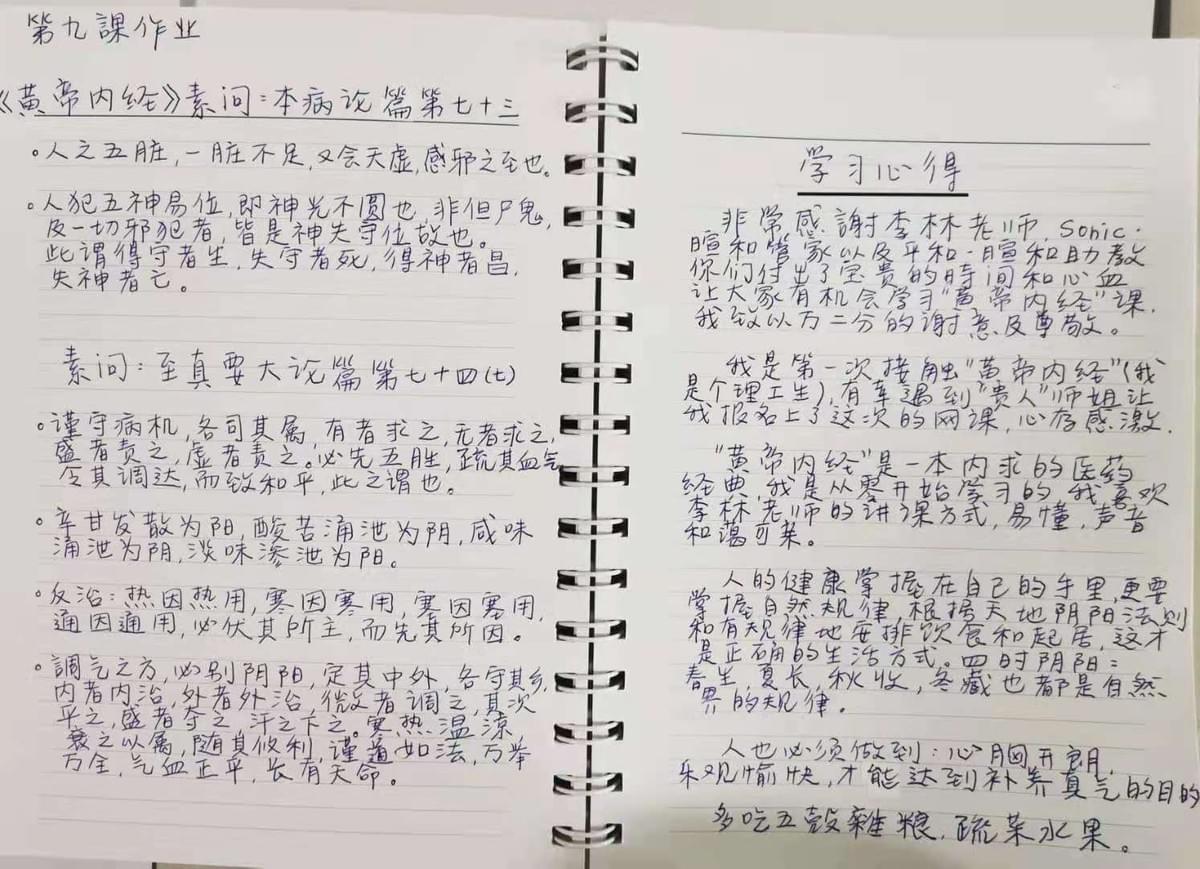 第九課作业
《黄帝内经》素问：本病论篇第七十三
。人之五脏，一脏不足，又会天虚，感邪之至也。
。人犯五神易位，即神光不圆也，非但尸鬼，
及一切邪犯者，皆是神失守位故也。
此谓得守者生，失守者死，得神者昌，
失神者亡。
素问：至真要大论篇第七十四（七）
。谨守病机，各司其属，有者求之，无者求之，
盛者责之，虚者责之。必先五胜，疏其血气
令其调达，而致和平，此之谓也。
。辛甘发散为阳，酸苦涌池为阴，咸味
涌池为阴，淡味渗池为阳。
。反治：热因热用，寒因寒用，塞因塞用，
通因通用，必伏其所主，而先其所因。
。調气之方，必别阴阳，定其中外，各守其乡，
内者内治，外者外治，微者調之，其次
平之，盛者夺之，汗之下之。寒热温涼
衰之以属，随其攸利，谨道如法，万举
万全，气血正平，长有天命。
学习心得
非常感謝李林老师，Sonic·
暄和管家以及平和·暄和助教
你们付出了宝贵的時间和心血
让大家有机会学习"黄帝内经"课，
我致以万二分的谢意及尊敬。
我是第一次接触"黄帝内经"（我
是个理工生），有幸遇到"贵人"师姐让
我报名上了这次的网课，心存感激．
"黄帝内经"是一本内求的医药
经典，我是从零开始学习的，我喜欢
李林老师的讲课方式，易懂，声音
和蔼可亲。
人的健康掌握在自己的手里，更要
掌握自然规律，根据天地阴阳法则
和有规律地安排饮食和起居，这才
是正确的生活方式。四时阴阳：
春生，夏长，秋收，冬藏也都是自然
界的规律。
人也必须做到：心胸开朗，
乐观愉快，才能达到补养真气的目的
多吃五穀雜粮，疏菜水果。